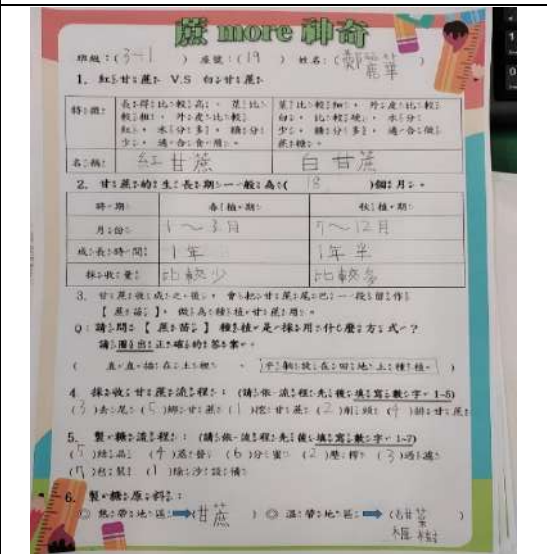 蔗 more 神奇
班級:(3-1) 座號:(19) 姓名:(鄭 華)
1. 紅甘蔗 V.S 白甘蔗
特徵 長得比較高、莖比較粗、外皮比較紅、水分多、糖分少、適合食用。 莖比較細、外皮比較白、比較硬、水分少、糖分多、適合做蔗糖。
名稱 紅甘蔗 白甘蔗
2. 甘蔗的生長期一般為( 18 )個月。
時期 春植期 秋植期
月份 1~3月 7~12月
成長時間 1年 1年半
採收量 比較少 比較多
3. 甘蔗收成之後,會把甘蔗尾巴一段留作
【蔗苗】,做為種植甘蔗用。
Q:請問【蔗苗】種植是採用什麼方式?
請圈出正確的答案。
( 直直插在土裡 、 平躺放在田地上種植。 )
4. 採收甘蔗流程:(請依流程先後填寫數字 1-5)
(3)去尾 (5)綁甘蔗 (1)挖甘蔗 (2)削頭 (4)排甘蔗
5. 製糖流程:(請依流程先後填寫數字 1-7)
(5)結晶 (4)蒸發 (6)分蜜 (2)壓榨 (3)過濾
(7)包裝 (1)除沙設備
6. 製糖原料:
◎ 熱帶地區 ➡ (甘蔗 ) ◎ 溫帶地區 ➡ (甜菜
楓樹 )